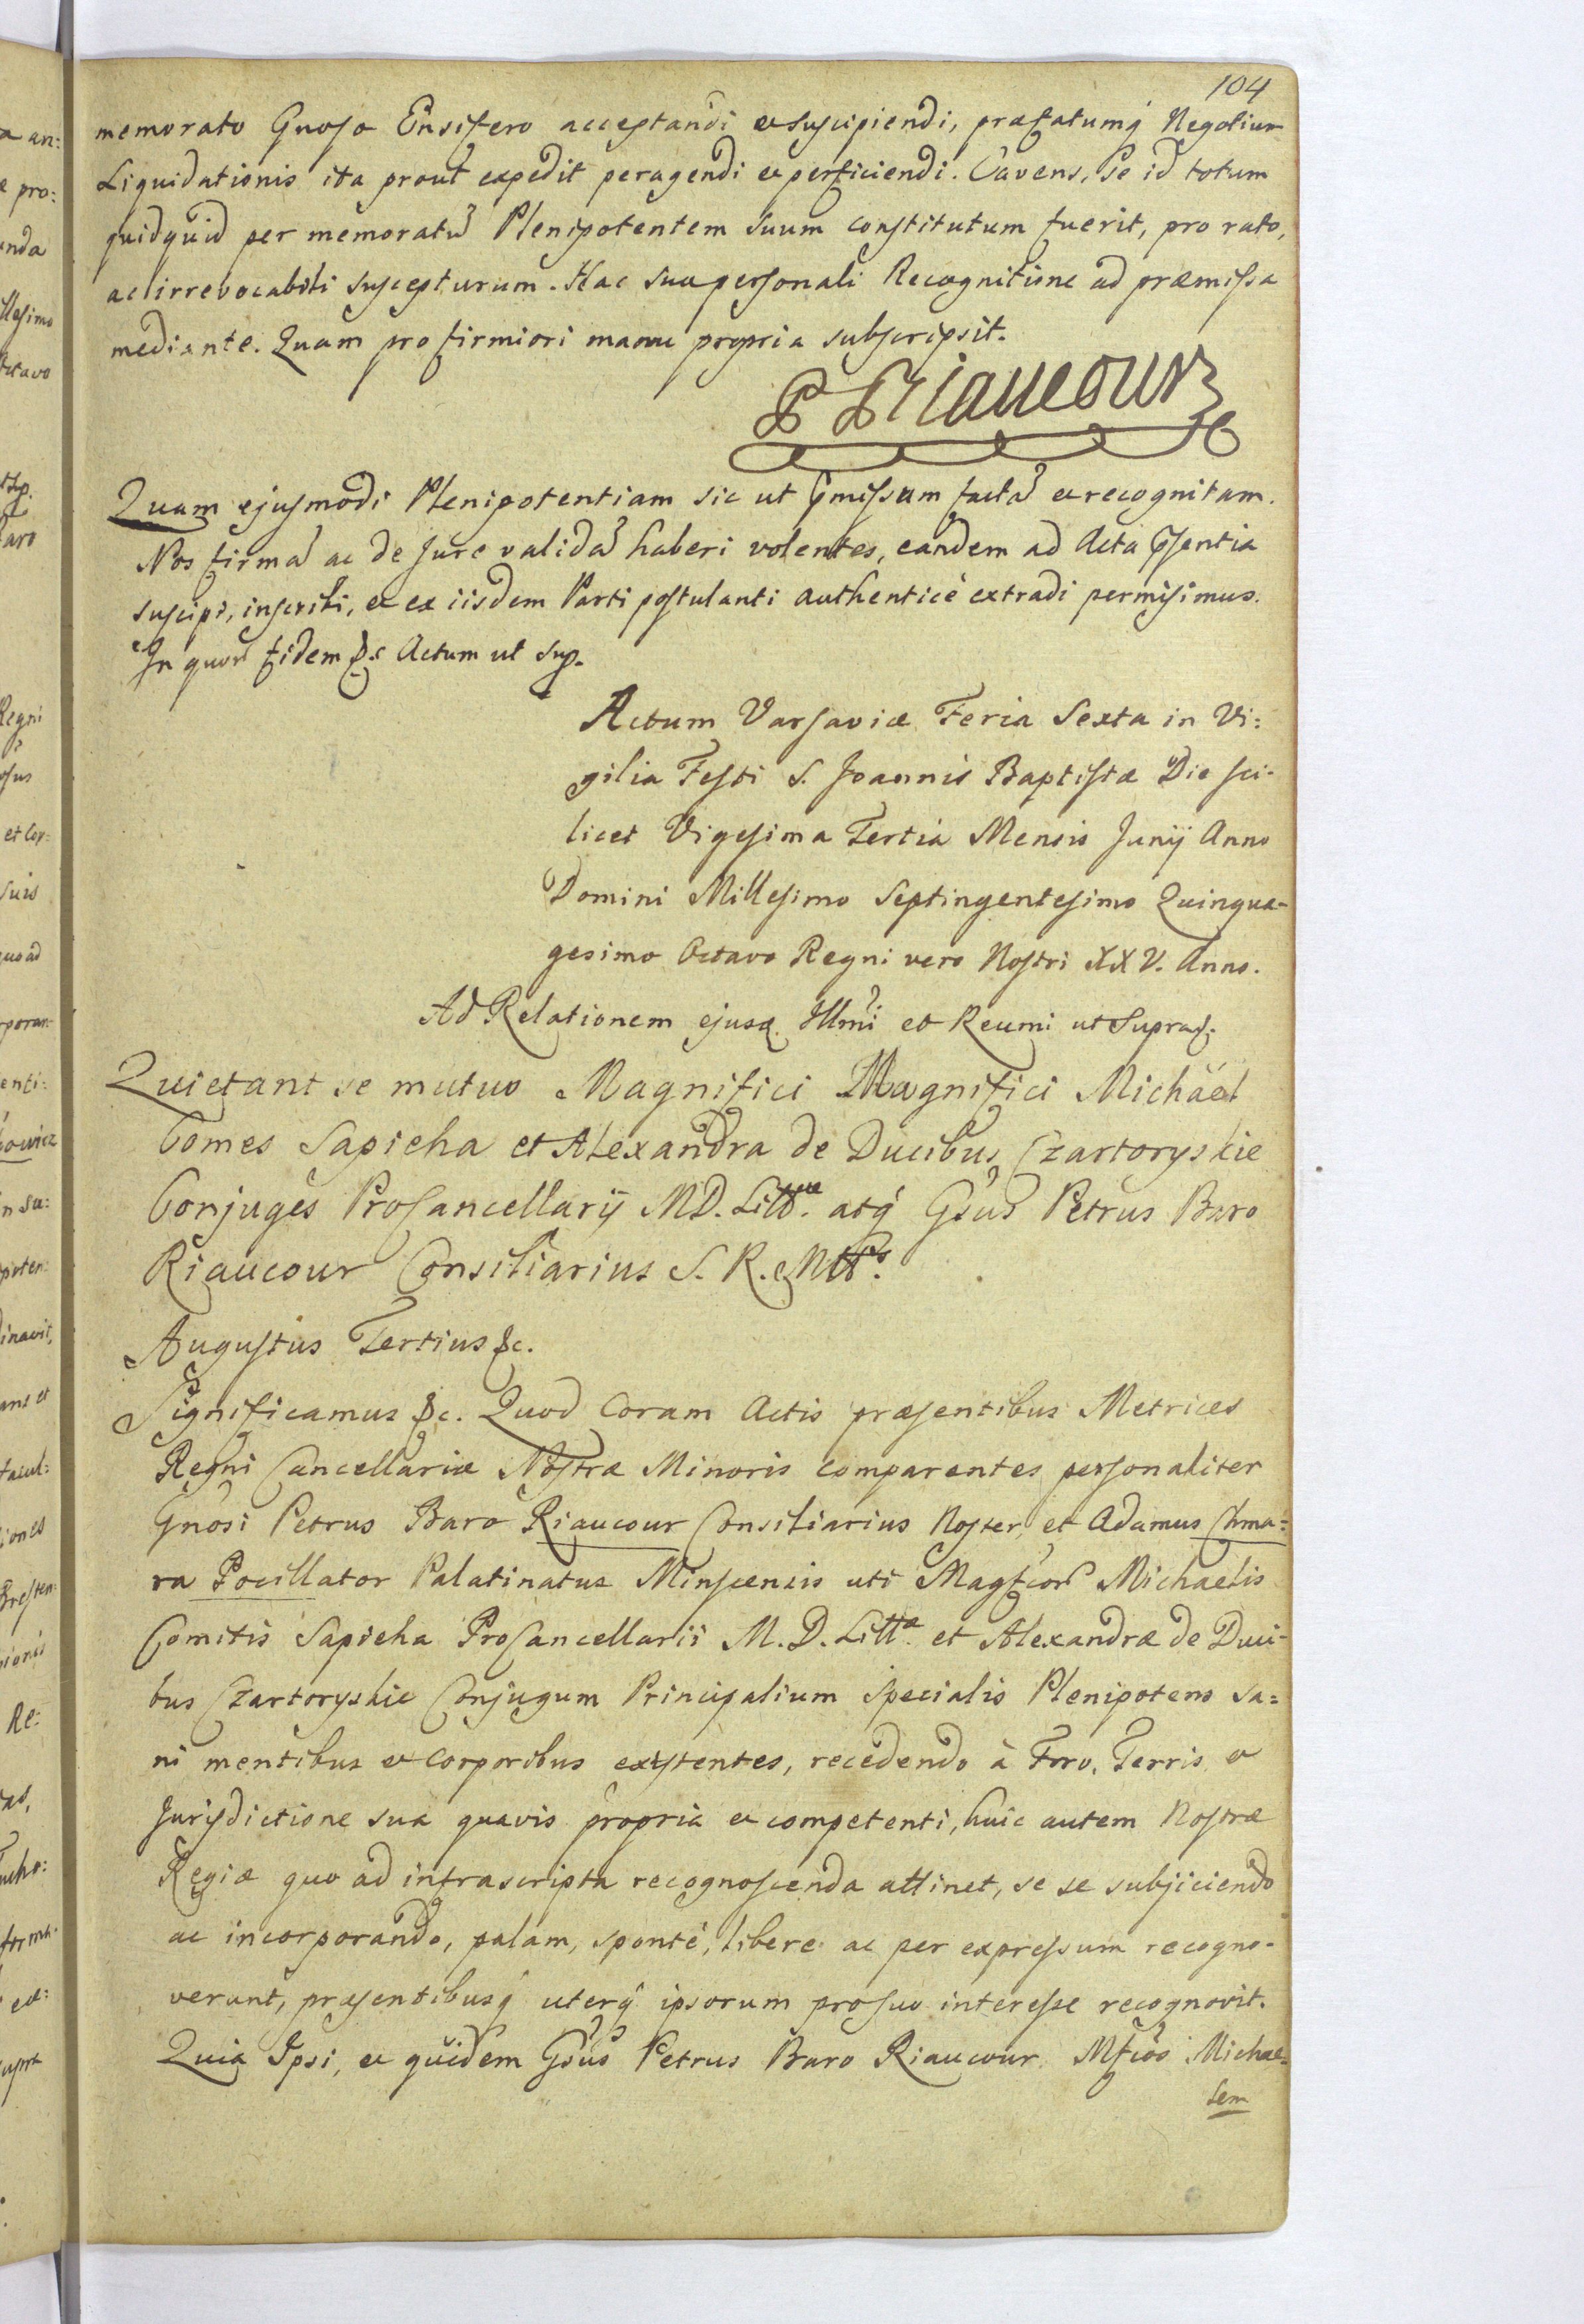 104
memorato Gnoso Ensifero acceptandi et suscipiendi, præfatumq́ Negotium
Liquidationis ita prout expedit peragendi et perficiendi. Cavens, se id totum
quidquid per memoratũ Plenipotentem suum constitutum fuerit, pro rato,
ac irrevocabili suscepturum. Hac sua personali Recognitione ad præmissa
mediante. Quam pro firmiori manu propria subscripsit.
P Riaucour
Quam ejusmodi Plenipotentiam sic ut p̃missum factã et recognitam.
Nos firmã ac de Jure validã haberi volentes, eandem ad Acta p̃sentia
suscipi, inscribi, et ex iisdem Parti postulanti authenticè extradi permisimus.
In quorũ fidem &c Actum ut sup.
Actum Varsaviæ Feria Sexta in Vi:
gilia Festi S. Joannis Baptistæ Die sci-
licet Vigesima Tertia Mensis Junij Anno
Domini Millesimo Septingentesimo Quinqua-
gesimo Octavo Regni vero Nostri XXV. Anno.
Ad Relationem ejusd. Illmi et Reumi ut Suprad.
Quietant se mutuo Magnifici Magnifici Michäel
Comes Sapieha et Alexandra de Ducibus Czartoryskie
Conjuges ProCancellarij M D. Littæ. atq́ Gsus Petrus Baro
Riaucour Consiliarius S. R. Mttis.
Augustus Tertius &c.
Significamus &c. Quod Coram Actis præsentibus Metrices
Regni Cancellariæ Nostræ Minoris comparentes personaliter
Gnosi Petrus Baro Riaucour Consiliarius Noster, et Adamus Chma:
ra Pocillator Palatinatus Minscensis uti Magfcorũ Michaelis
Comitis Sapieha ProCancellarii M. D. Litta. et Alexandræ de Duci-
bus Czartoryskie Conjugum Principalium Specialis Plenipotens sa=
ni mentibus et Corporibus existentes, recedendo à Foro, Terris et
Jurisdictione sua quavis propria et competenti, huic autem Nostræ
Regiæ quo ad infrascripta recognoscenda attinet, se se subjiciendo
ac incorporando, palam, sponté, libere ac per expressum recogno-
verunt, præsentibusq́ uterq́ ipsorum pro suo interesse recognovit.
Quia Ipsi, et quidem Gsus Petrus Baro Riaucour Mfcos Michae=
lem